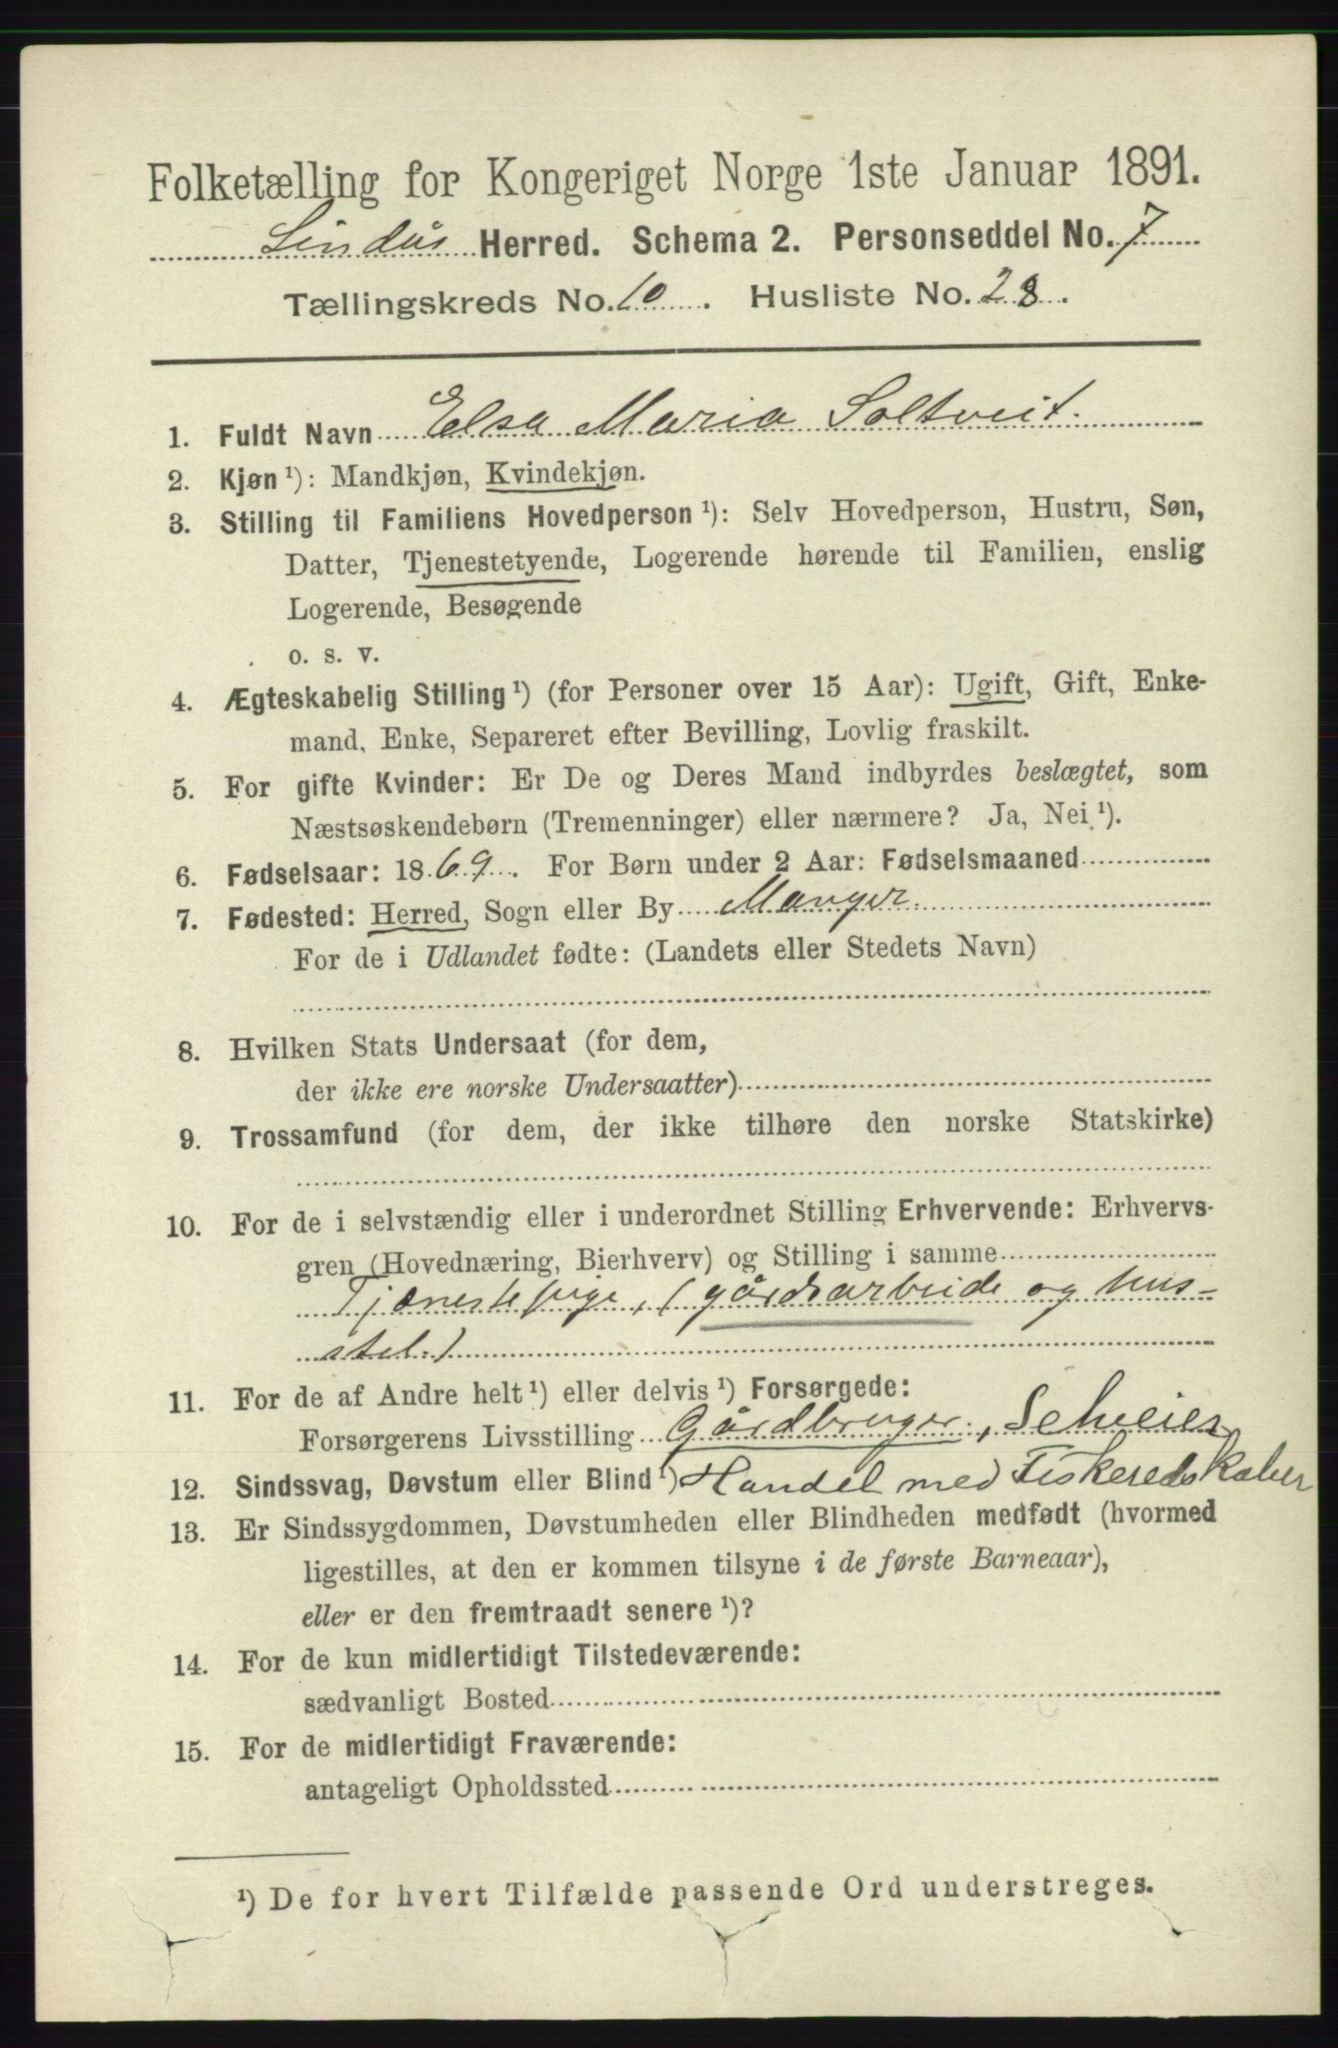 Folketælling for Kongeriget Norge 1ste Januar 1891.
Lindås Herred. Schema 2. Personseddel No. 7
Tællingskreds No. 10. Husliste No. 28.
1. Fuldt Navn Elsa Maria Soltveit.
2. Kjøn ¹): Mandkjøn, Kvindekjøn.
3. Stilling til Familiens Hovedperson ¹): Selv Hovedperson, Hustru, Søn,
Datter, Tjenestetyende, Logerende hørende til Familien, enslig
Logerende, Besøgende
o. s. v.
4. Ægteskabelig Stilling ¹) (for Personer over 15 Aar): Ugift, Gift, Enke-
mand, Enke, Separeret efter Bevilling, Lovlig fraskilt.
5. For gifte Kvinder: Er De og Deres Mand indbyrdes beslægtet, som
Næstsøskendebørn (Tremenninger) eller nærmere? Ja, Nei ¹).
6. Fødselsaar: 1869. For Børn under 2 Aar: Fødselsmaaned
7. Fødested: Herred, Sogn eller By Manger.
For de i Udlandet fødte: (Landets eller Stedets Navn)
8. Hvilken Stats Undersaat (for dem,
der ikke ere norske Undersaatter)
9. Trossamfund (for dem, der ikke tilhøre den norske Statskirke)
10. For de i selvstændig eller i underordnet Stilling Erhvervende: Erhvervs-
gren (Hovednæring, Bierhverv) og Stilling i samme
Tjænestepige, (gårdsarbeide og hus-
stel.)
11. For de af Andre helt ¹) eller delvis ¹) Forsørgede:
Forsørgerens Livsstilling Gårdbruger.,
12. Sindssvag, Døvstum eller Blind ¹) Handel med Fiskeredskaber
13. Er Sindssygdommen, Døvstumheden eller Blindheden medfødt (hvormed
ligestilles, at den er kommen tilsyne i de første Barneaar),
eller er den fremtraadt senere ¹)?
14. For de kun midlertidigt Tilstedeværende:
sædvanligt Bosted
15. For de midlertidigt Fraværende:
antageligt Opholdssted
¹) De for hvert Tilfælde passende Ord understreges.